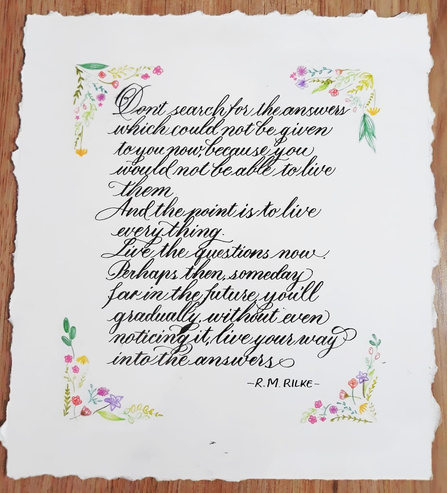 Don't search for the answers
which could not be given
to you now, because you
would not be able to live
them
And the point is to live
everything.
Live the questions now.
Perhaps then, someday
far in the future, you'll
gradually, without even
noticing it, live your way
into the answers
~R.M. RILKE~